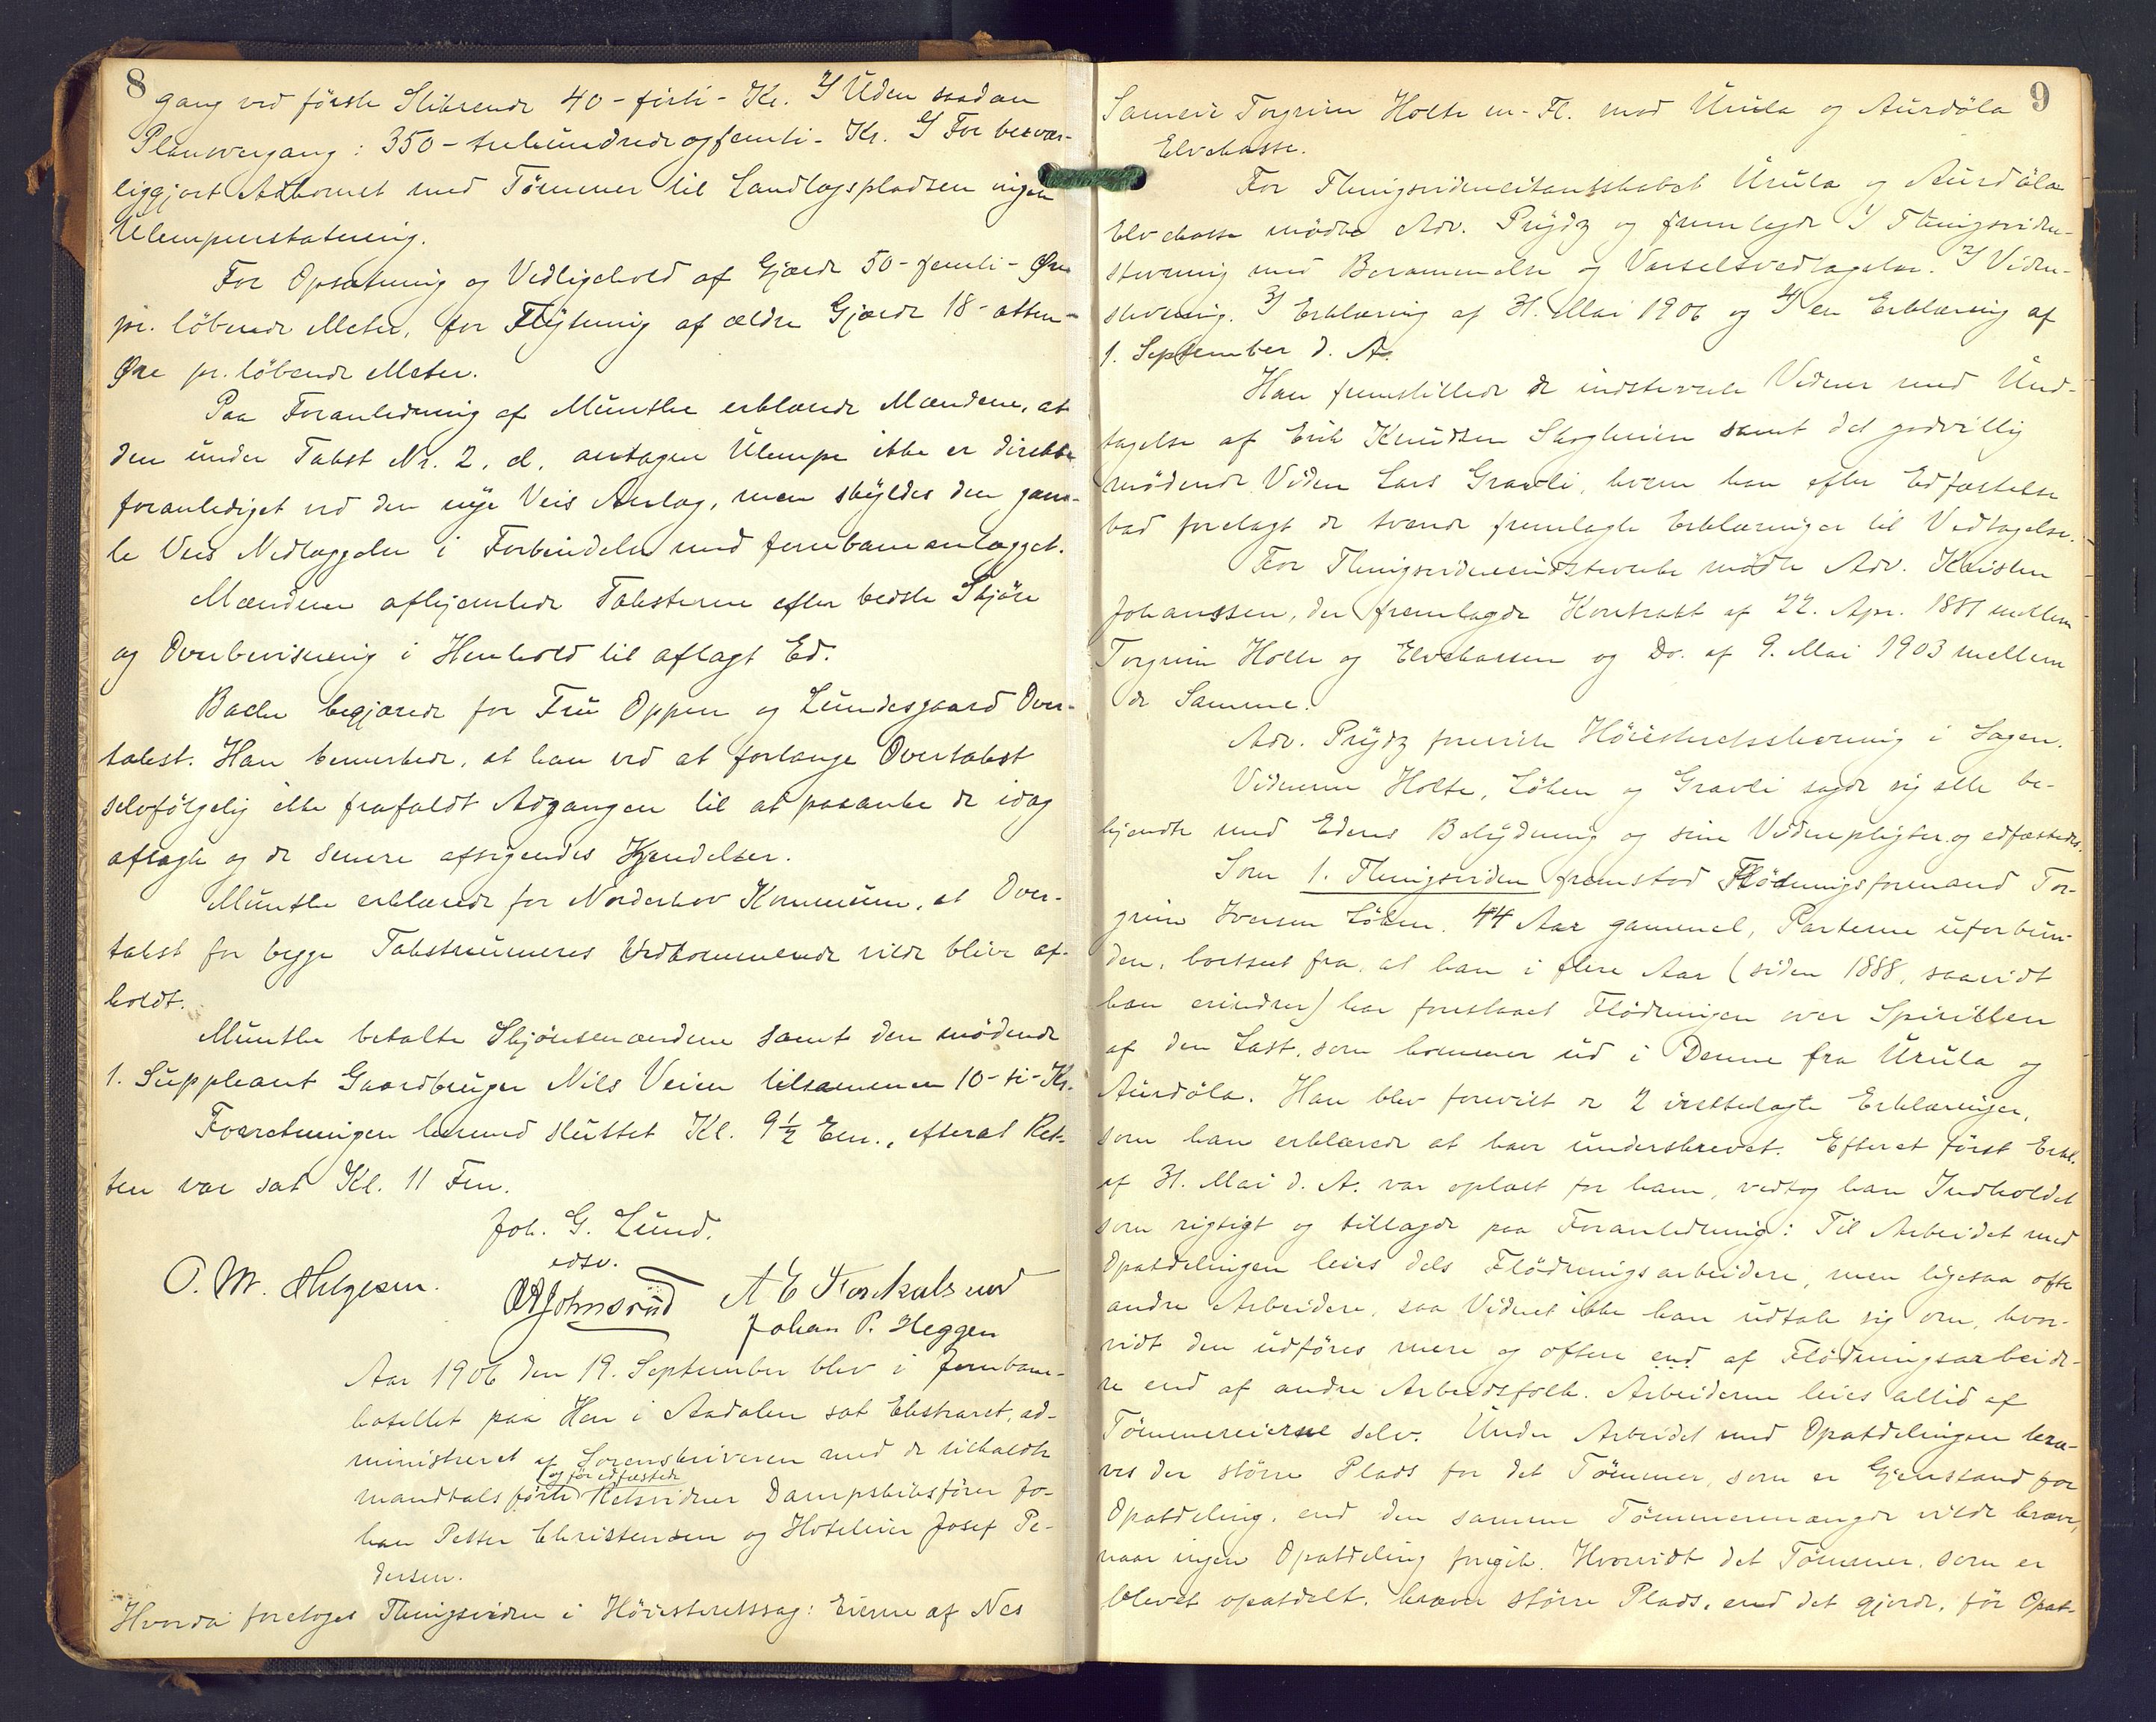 8
gang ved første Stikrende 40 - førti - Kr. 2/ Uden saadan
Planovergang: 350 - trehundrede og femti - Kr. 3/ For besvær-
liggjort Adkomst med Tømmer til Landlagspladsen ingen
Ulempeerstatning.
For Opsætning og Vedligehold af Gjærde 50 - femti - Øre
pr. løbende Meter, for Flytning af ældre Gjærde 18 - atten -
Øre pr. løbende Meter.
Paa Foranledning af Münthe erklærede Mændene, at
den under Takst Nr. 2, d, antagne Ulempe ikke er direkte
foranlediget ved den nye Veis Anlæg, men skyldes den gam-
le Veis Nedlæggelse i Forbindelse med Jernbaneanlægget.
Mændene afhjemlede Taksterne efter bedste Skjøn
og Overbevisning i Henhold til aflagt Ed.
Bache begjærede for Fru Oppen og Lundesgaard Over-
takst. Han bemerkede, at han ved at forlange Overtakst
selvfølgelig ikke frafaldt Adgangen til at paaanke de idag
afsagte og de senere afsigendes Kjendelser.
Münthe erklærede for Norderhov Kommune, at Over-
takst for begge Takstnumeres Vedkommende vilde blive af-
holdt.
Münthe betalte Skjønsmændene samt den mødende
1. Suppleant Gaardbruger Nils Veien tilsammen 10 - ti - Kr.
Forretningen hermed sluttet Kl. 9½ Em., efterat Ret-
ten var sat Kl. 11 Fm.
Joh. G. Lund.
edsv.
O. M. Helgesen. Johnsrud A E
Johan P. Heggen
Aar 1906 den 19. September blev i Jernbane-
hotellet paa Hen i Aadalen sat Ekstraret, ad-
ministreret af Sorenskriveren med de tilkaldte
og før edfæstede
mandtalsførte Retsvidner Dampskibsfører Jo-
han Petter Christensen og Hoteleier Josef Pe-
dersen.
Hvorda foretoges Thingsvidne i Høiesteretssag: Eierne af Nes
9
Sameie Torgrim Holte m. Fl. mod Urula og Aurdøla
Elvekasse.
For Thingsvidnecitantskabet Urula og Aurdøla
Elvekasse mødte Adv. Prydz og fremlagde 1/ Thingsvidne-
stevning med Berammelse og Varselsvedtagelse. 2/ Vidne-
stevning. 3/ Erklæring af 31. Mai 1906 og 4/ en Erklæring af
1. September d. A.
Han fremstillede de indstevnte Vidner med Und-
tagelse af Erik Knudsen Skogheim samt det godvillig
mødende Vidne Lars Gravli, hvem han efter Edfæstelse
bad forelagt de tvende fremlagte Erklæringer til Vedtagelse.
For Thingsvidneindstevnte mødte Adv. Kristen
Johanssen, der fremlagde Kontrakt af 22. Apr. 1881 mellem
Torgrim Holte og Elvekassen og Do. af 9. Mai 1903 mellem
de Samme.
Adv. Prydz foreviste Høiesteretsstevning i Sagen.
Vidnerne Holte, Løken og Gravli sagde sig alle be-
kjendte med Edens Betydning og sine Vidnepligter og edfæstedes.
Som 1. Thingsvidne fremstod Flødningsformand Tor-
grim Iversen Løken. 44 Aar gammel, Parterne uforbun-
den, bortseet fra, at han i flere Aar (siden 1888, saavidt
han erindrer) har forestaaet Flødningen over Spirillen
af den Last, som kommer ud i Denne fra Urula og
Aurdøla. Han blev forevist de 2 irettelagte Erklæringer,
som han erklærede at have underskrevet. Efterat først Erkl.
af 31. Mai d. A. var oplæst for ham, vedtog han Indholdet
som rigtigt og tillagde paa Foranledning: Til Arbeidet med
Opatdelingen leies dels Flødningsarbeidere, men ligesaa ofte
andre Arbeidere, saa Vidnet ikke kan udtale sig om, hvor-
vidt den udføres mere og oftere end af Flødningsarbeide-
re end af andre Arbeidsfolk. Arbeiderne leies altid af
Tømmereierne selv. Under Arbeidet med Opatdelingen kræ-
ves der større Plads for det Tømmer, som er Gjenstand for
Opatdeling, end den samme Tømmermængde vilde kræve,
naar ingen Opatdeling foregik. Hvorvidt det Tømmer, som er
blevet opatdelt, kræver større Plads, end det gjorde, før Opat-